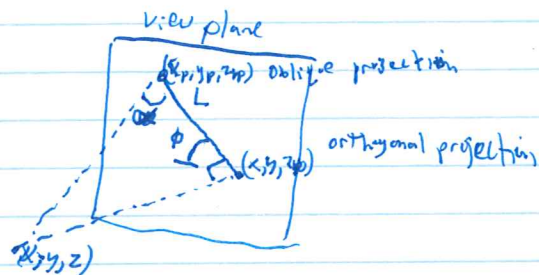 view plane
(xp,yp,zvp) oblique projection
L
α
φ
(x,y,zvp) orthogonal projection
(x,y,z)